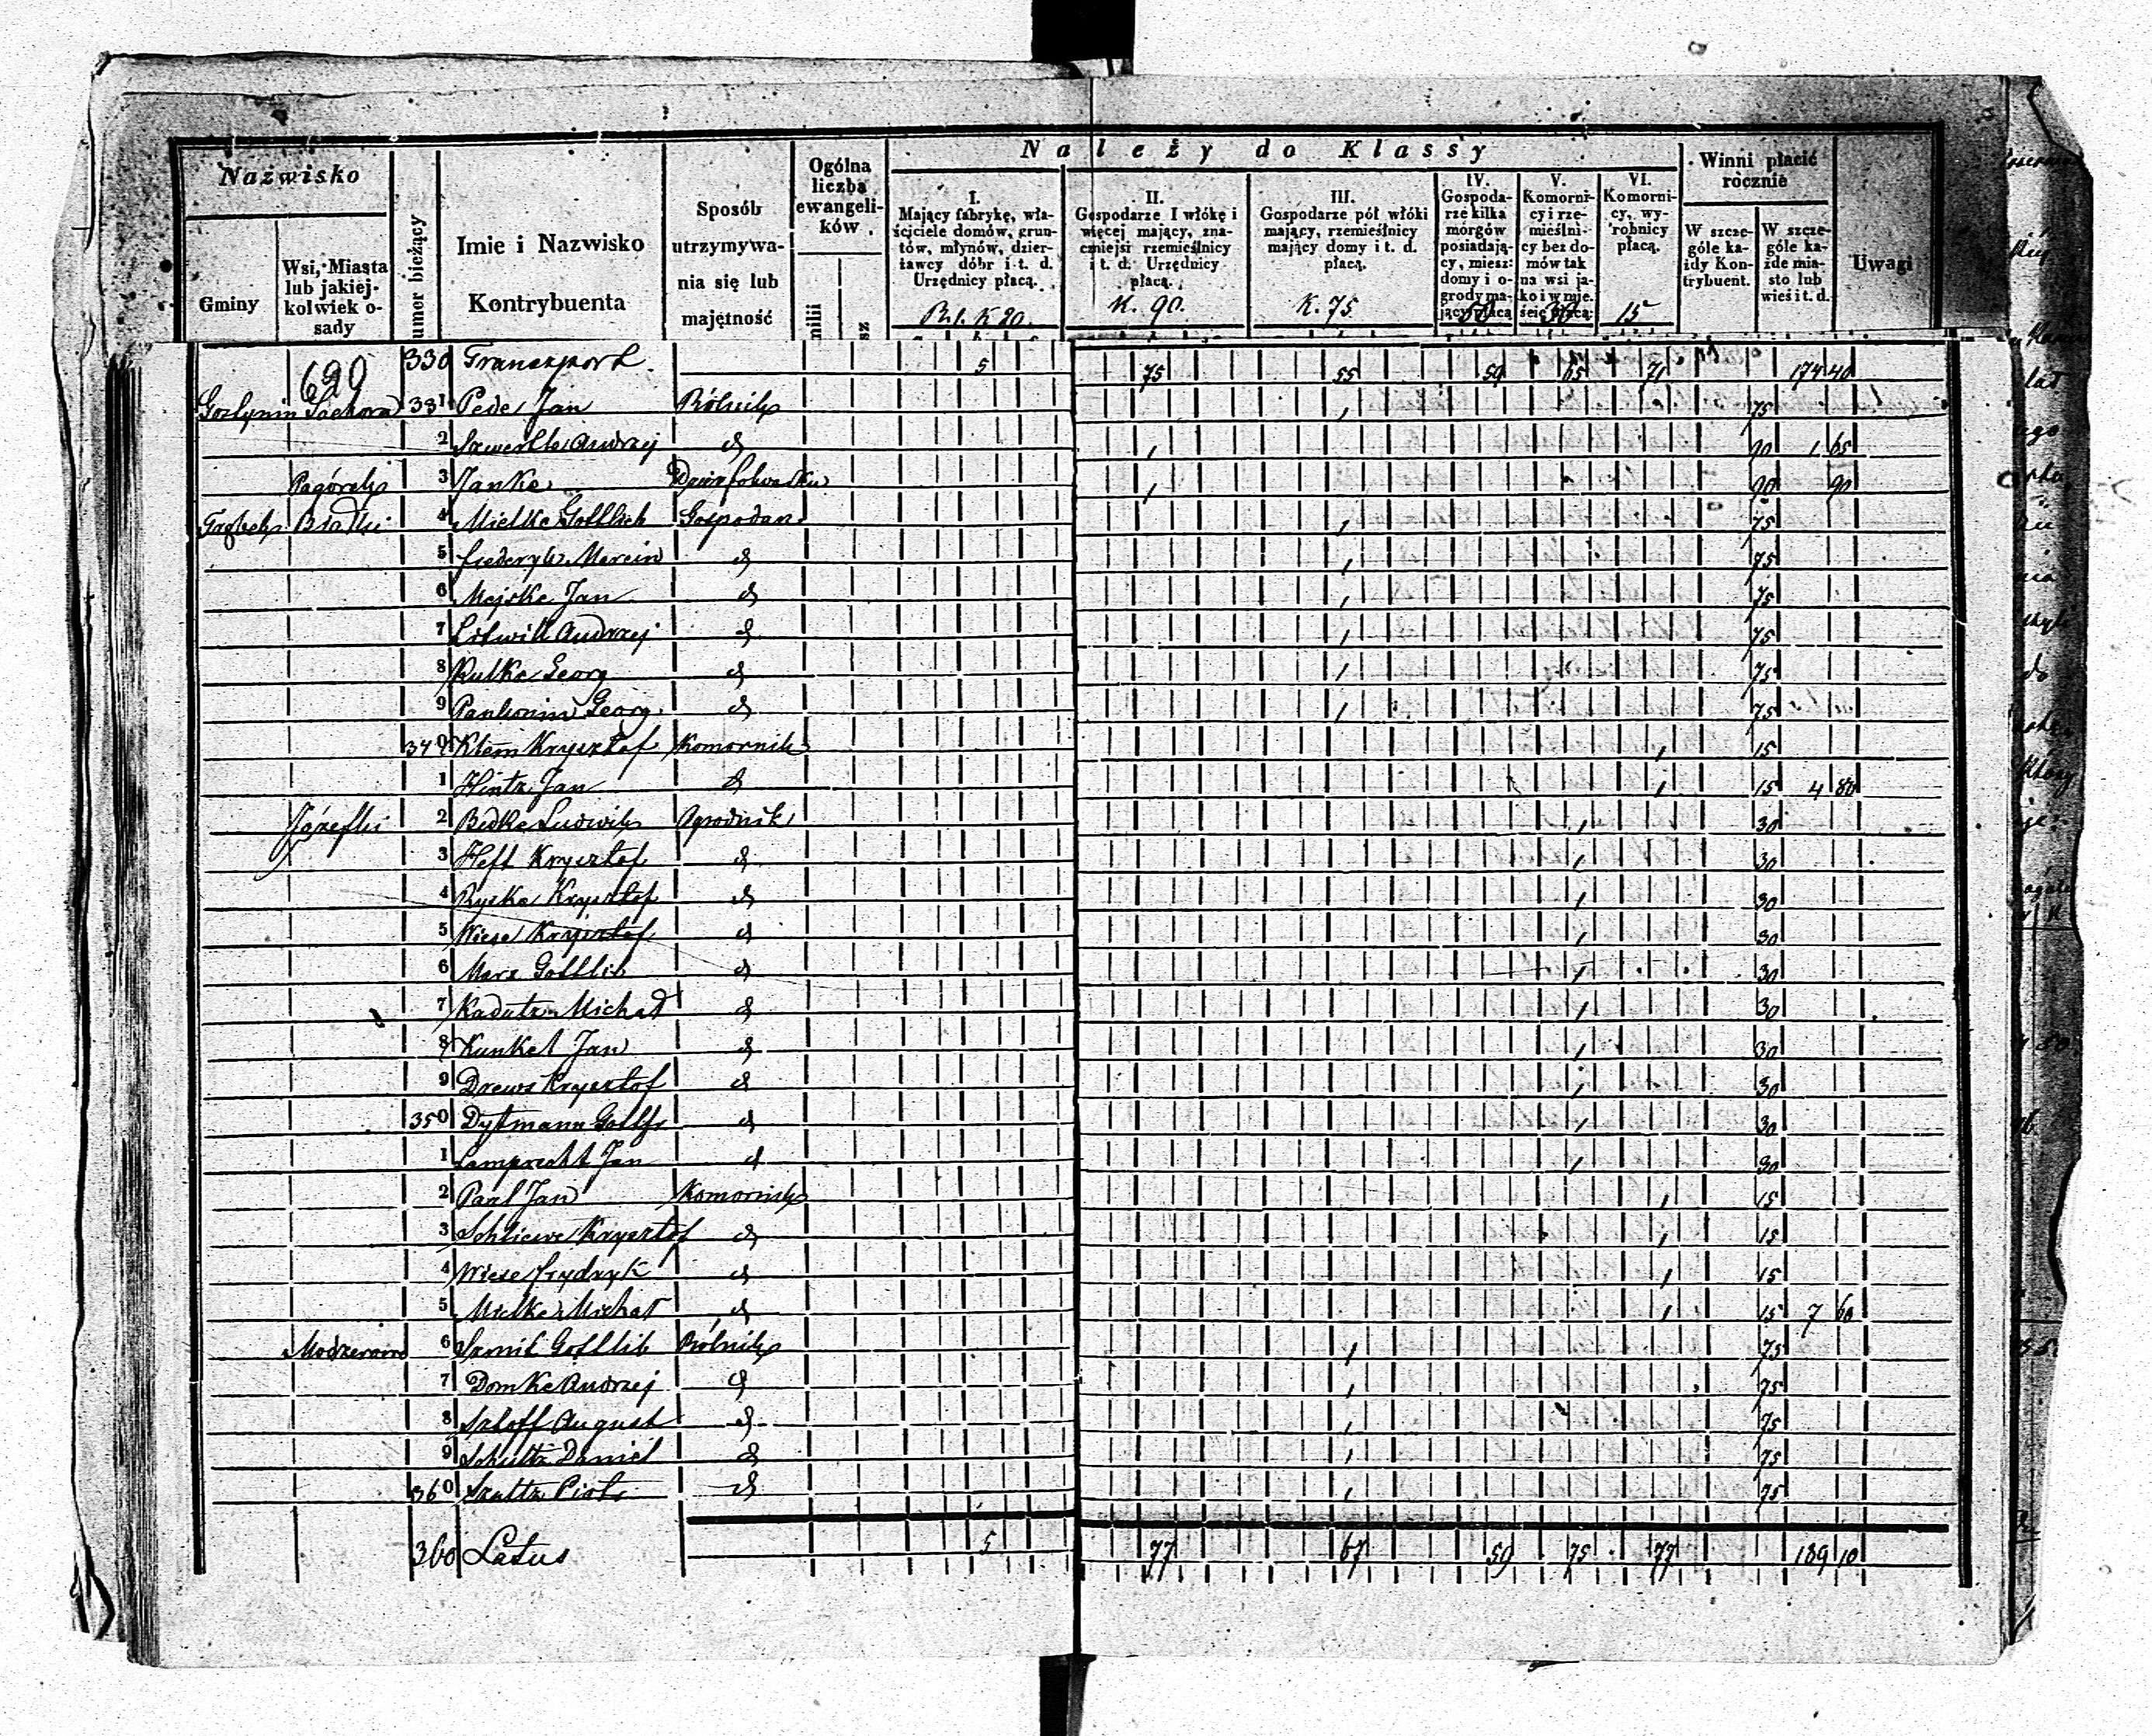 Należy do Klassy
Nazwisko
Gminy
Wsi, Miasta lub jakiejkolwiek osady
umor bieżący
Imie i Nazwisko Kontrybuenta
Sposób utrzymywania się lub majętność
Ogólna liczba ewangelików
milii
sz
I. Mający fabrykę, właściciele domów, gruntów, młynów, dzierżawcy dóbr i t. d. Urzędnicy płacą. R. 1. K 20.
II. Gospodarze I włókę i więcej mający, znaczniejsi rzemieślnicy i t. d. Urzędnicy płacą. K. 90.
III. Gospodarze pół włóki mający, rzemieślnicy mający domy i t. d. płacą. K. 75
IV. Gospodarze kilka morgów posiadający, miesz: domy i ogrody mający płacą 50
V. Komornicy i rzemieślnicy bez domów tak na wsi jako i w mieście płacą: 30
VI. Komornicy, wyrobnicy płacą. 15
Winni płacić rocznie
W szczególe każdy Kontrybuent.
W szczególe każde miasto lub wieś i t. d.
Uwagi
690 330 Transport. 5 75 55 59 65 71 174 40
Gozlynin Sachora 331 Pede Jan Rólnik 1 75
2 Andrzej d 1 90 1 65
Pagórek 3 Janke Dzier folwarku 1 90 90
Biadki 4 Mielke Gottlieb Gospodarz 1 75
5 Frederyk Marcin d 1 75
6 Majske Jan d 1 75
7 Litwill Andrzej d 1 75
8 Rutke Georg d 1 75
9 Pankonin Georg d 1 75
340 Klem Krysztof Komornik 1 15
1 Hintz Jan d 1 15 4 80
Józefki 2 Bedke Ludwik Ogrodnik 1 30
3 Heft Krysztof d 1 30
4 Ryske Krysztof d 1 30
5 Wiese Krysztof d 1 30
6 Marx Gottlib d 1 30
7 Kadatz Michał d 1 30
8 Kunkel Jan d 1 30
9 Drews Krysztof d 1 30
350 Dytmann Gottfr d 1 30
1 Lamprecht Jan d 1 30
2 Parl Jan Komornik 1 15
3 Schliewe Krysztof d 1 15
4 Wiese Frydryk d 1 15
5 Mielke Michał d 1 15 7 60
Modzerowo 6 Szmit Gottlib Rólnik 1 75
7 Domke Andrzej d 1 75
8 Szloff August d 1 75
9 Schultz Daniel d 1 75
360 Szultz Piotr d 1 75
360 Latus 5 77 67 59 75 77 189 10